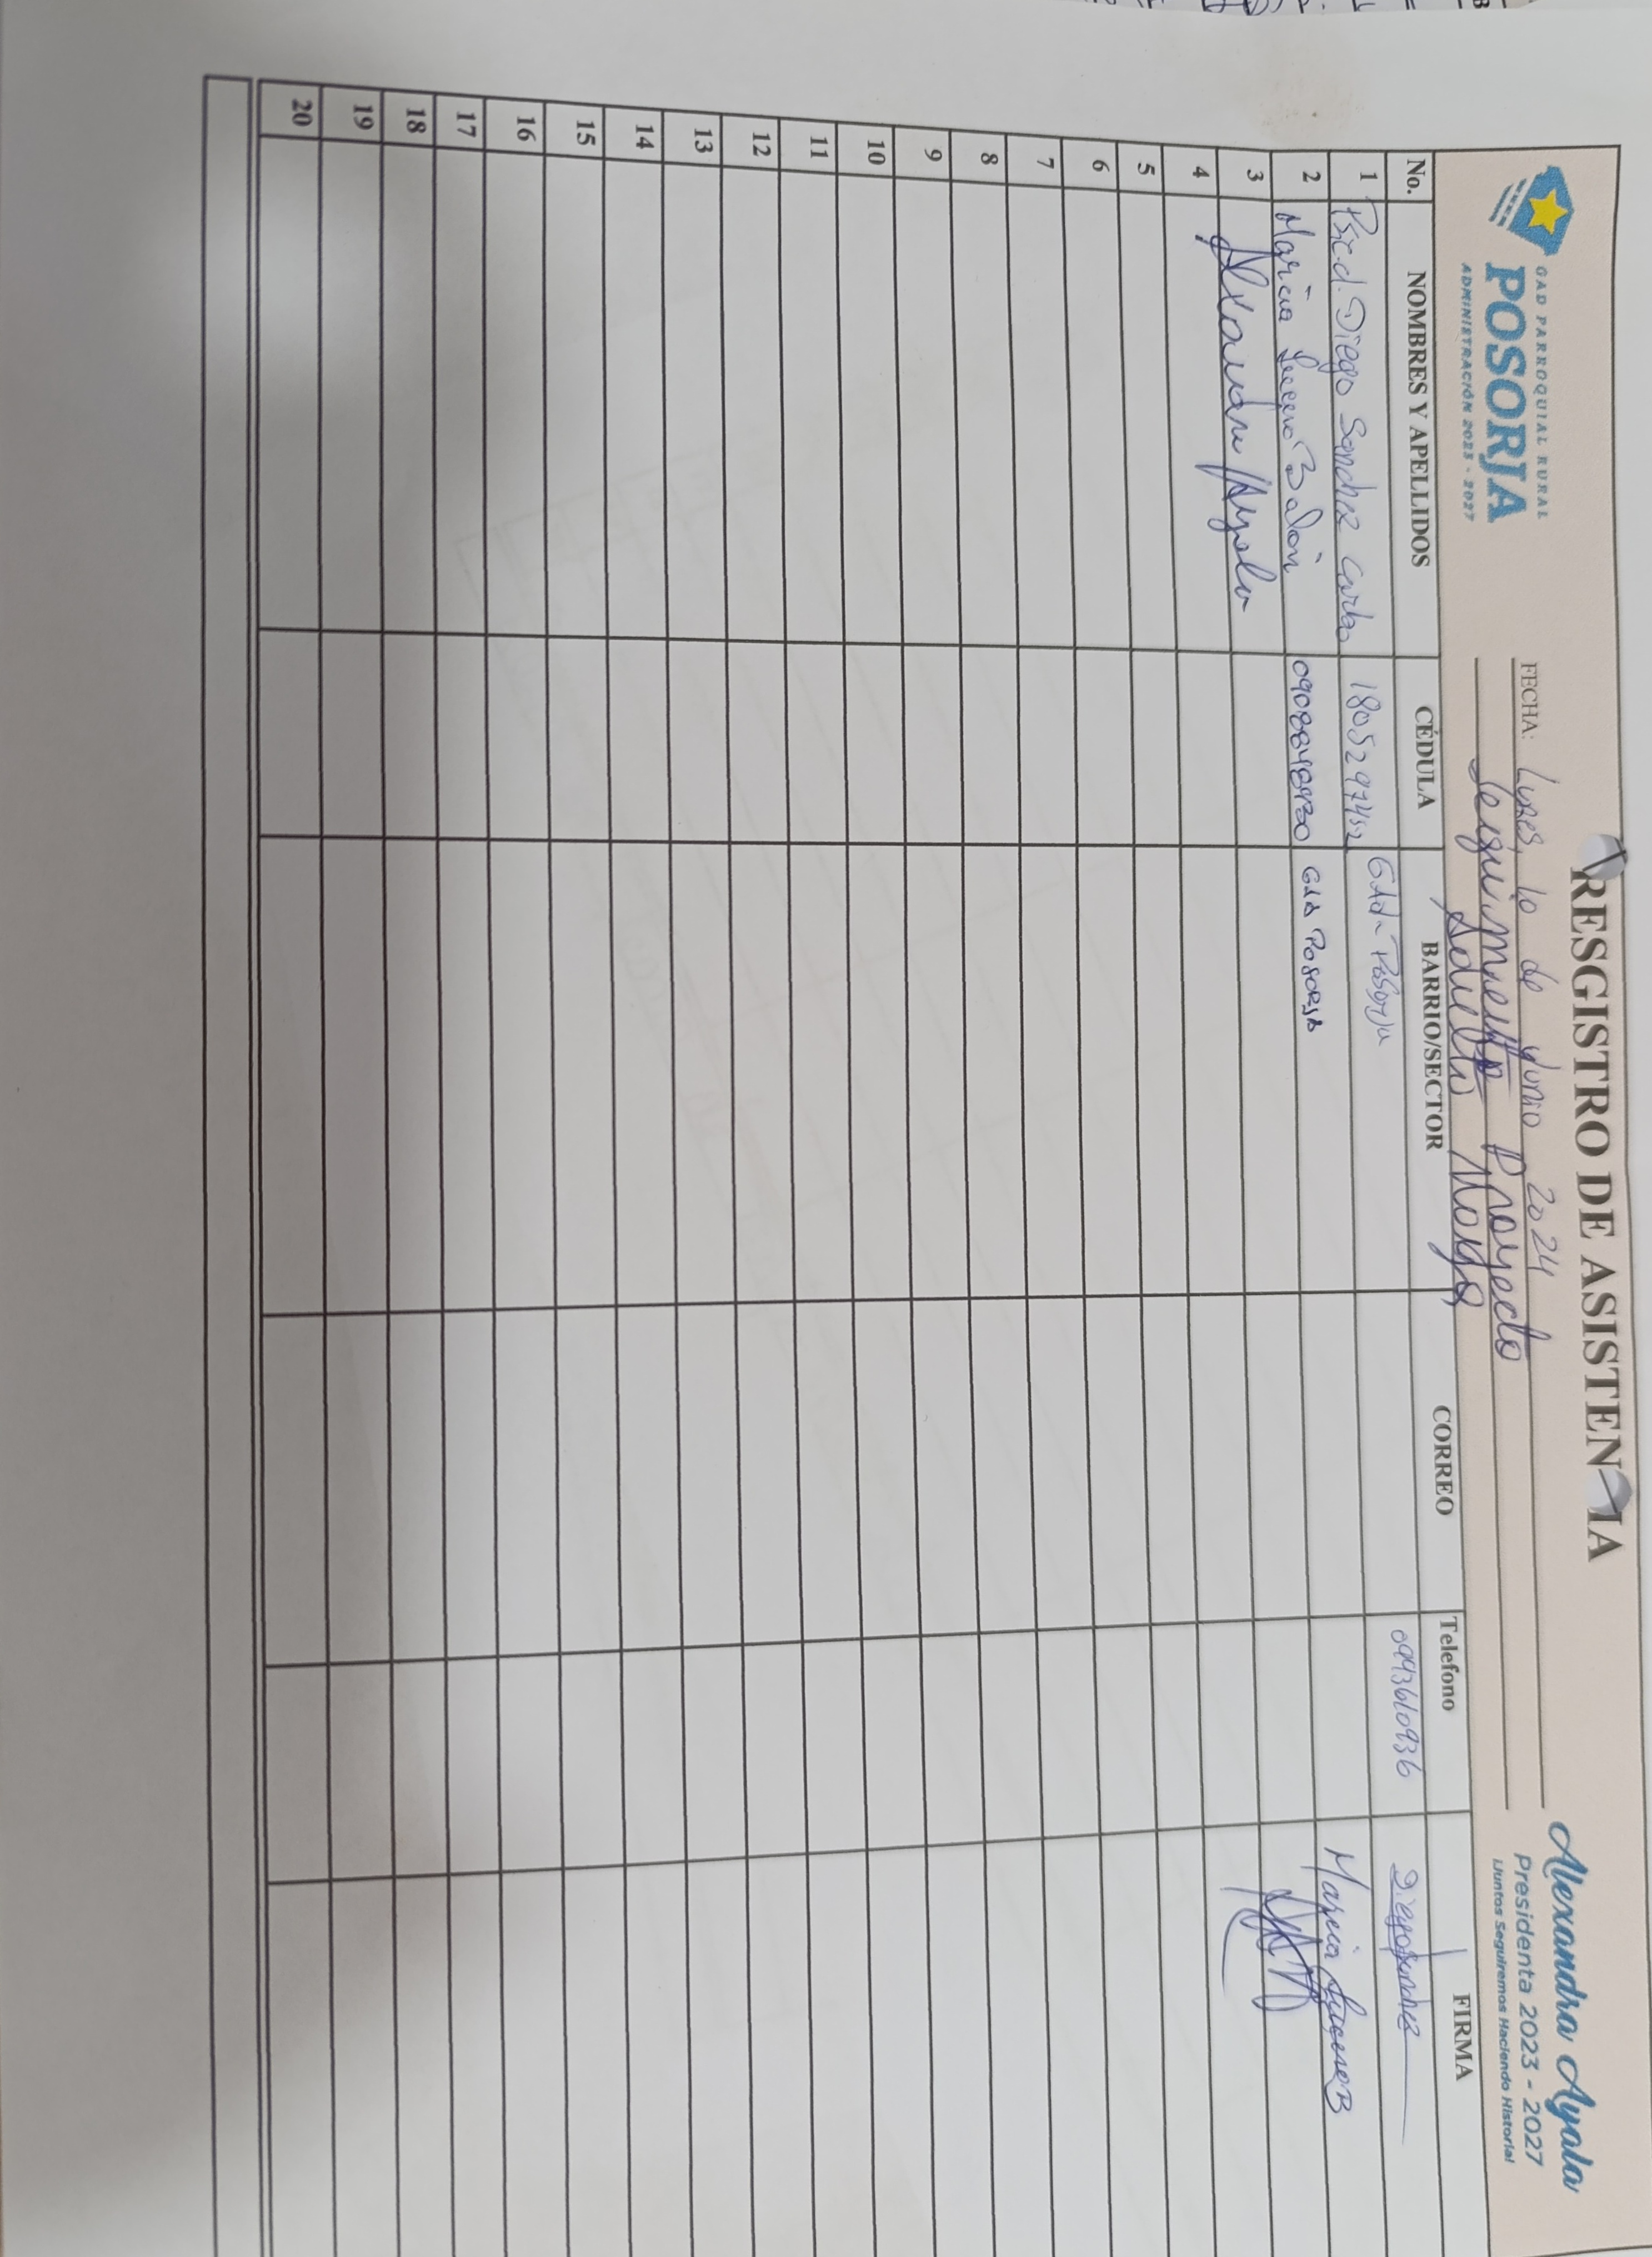 RESGISTRO DE ASISTEN IA
GAD PARROQUIAL RURAL
POSORJA
ADMINISTRACIÓN 2023 - 2027
FECHA: Lunes, 10 de Junio 2024
Seguimiento Proyecto
Adulto Mayor
Alexandra Ayala
Presidenta 2023 - 2027
¡Juntos Seguiremos Haciendo Historia!
No. NOMBRES Y APELLIDOS CÉDULA BARRIO/SECTOR CORREO Telefono FIRMA
1 Psic.cl. Diego Sanchez Carbo GAD-Posorja 0993610936 Diego Sanchez
2 Maria Lucero Balón 0908848930 GAD POSORJA Maria Lucero B
3 Alexandra Ayala
4
5
6
7
8
9
10
11
12
13
14
15
16
17
18
19
20